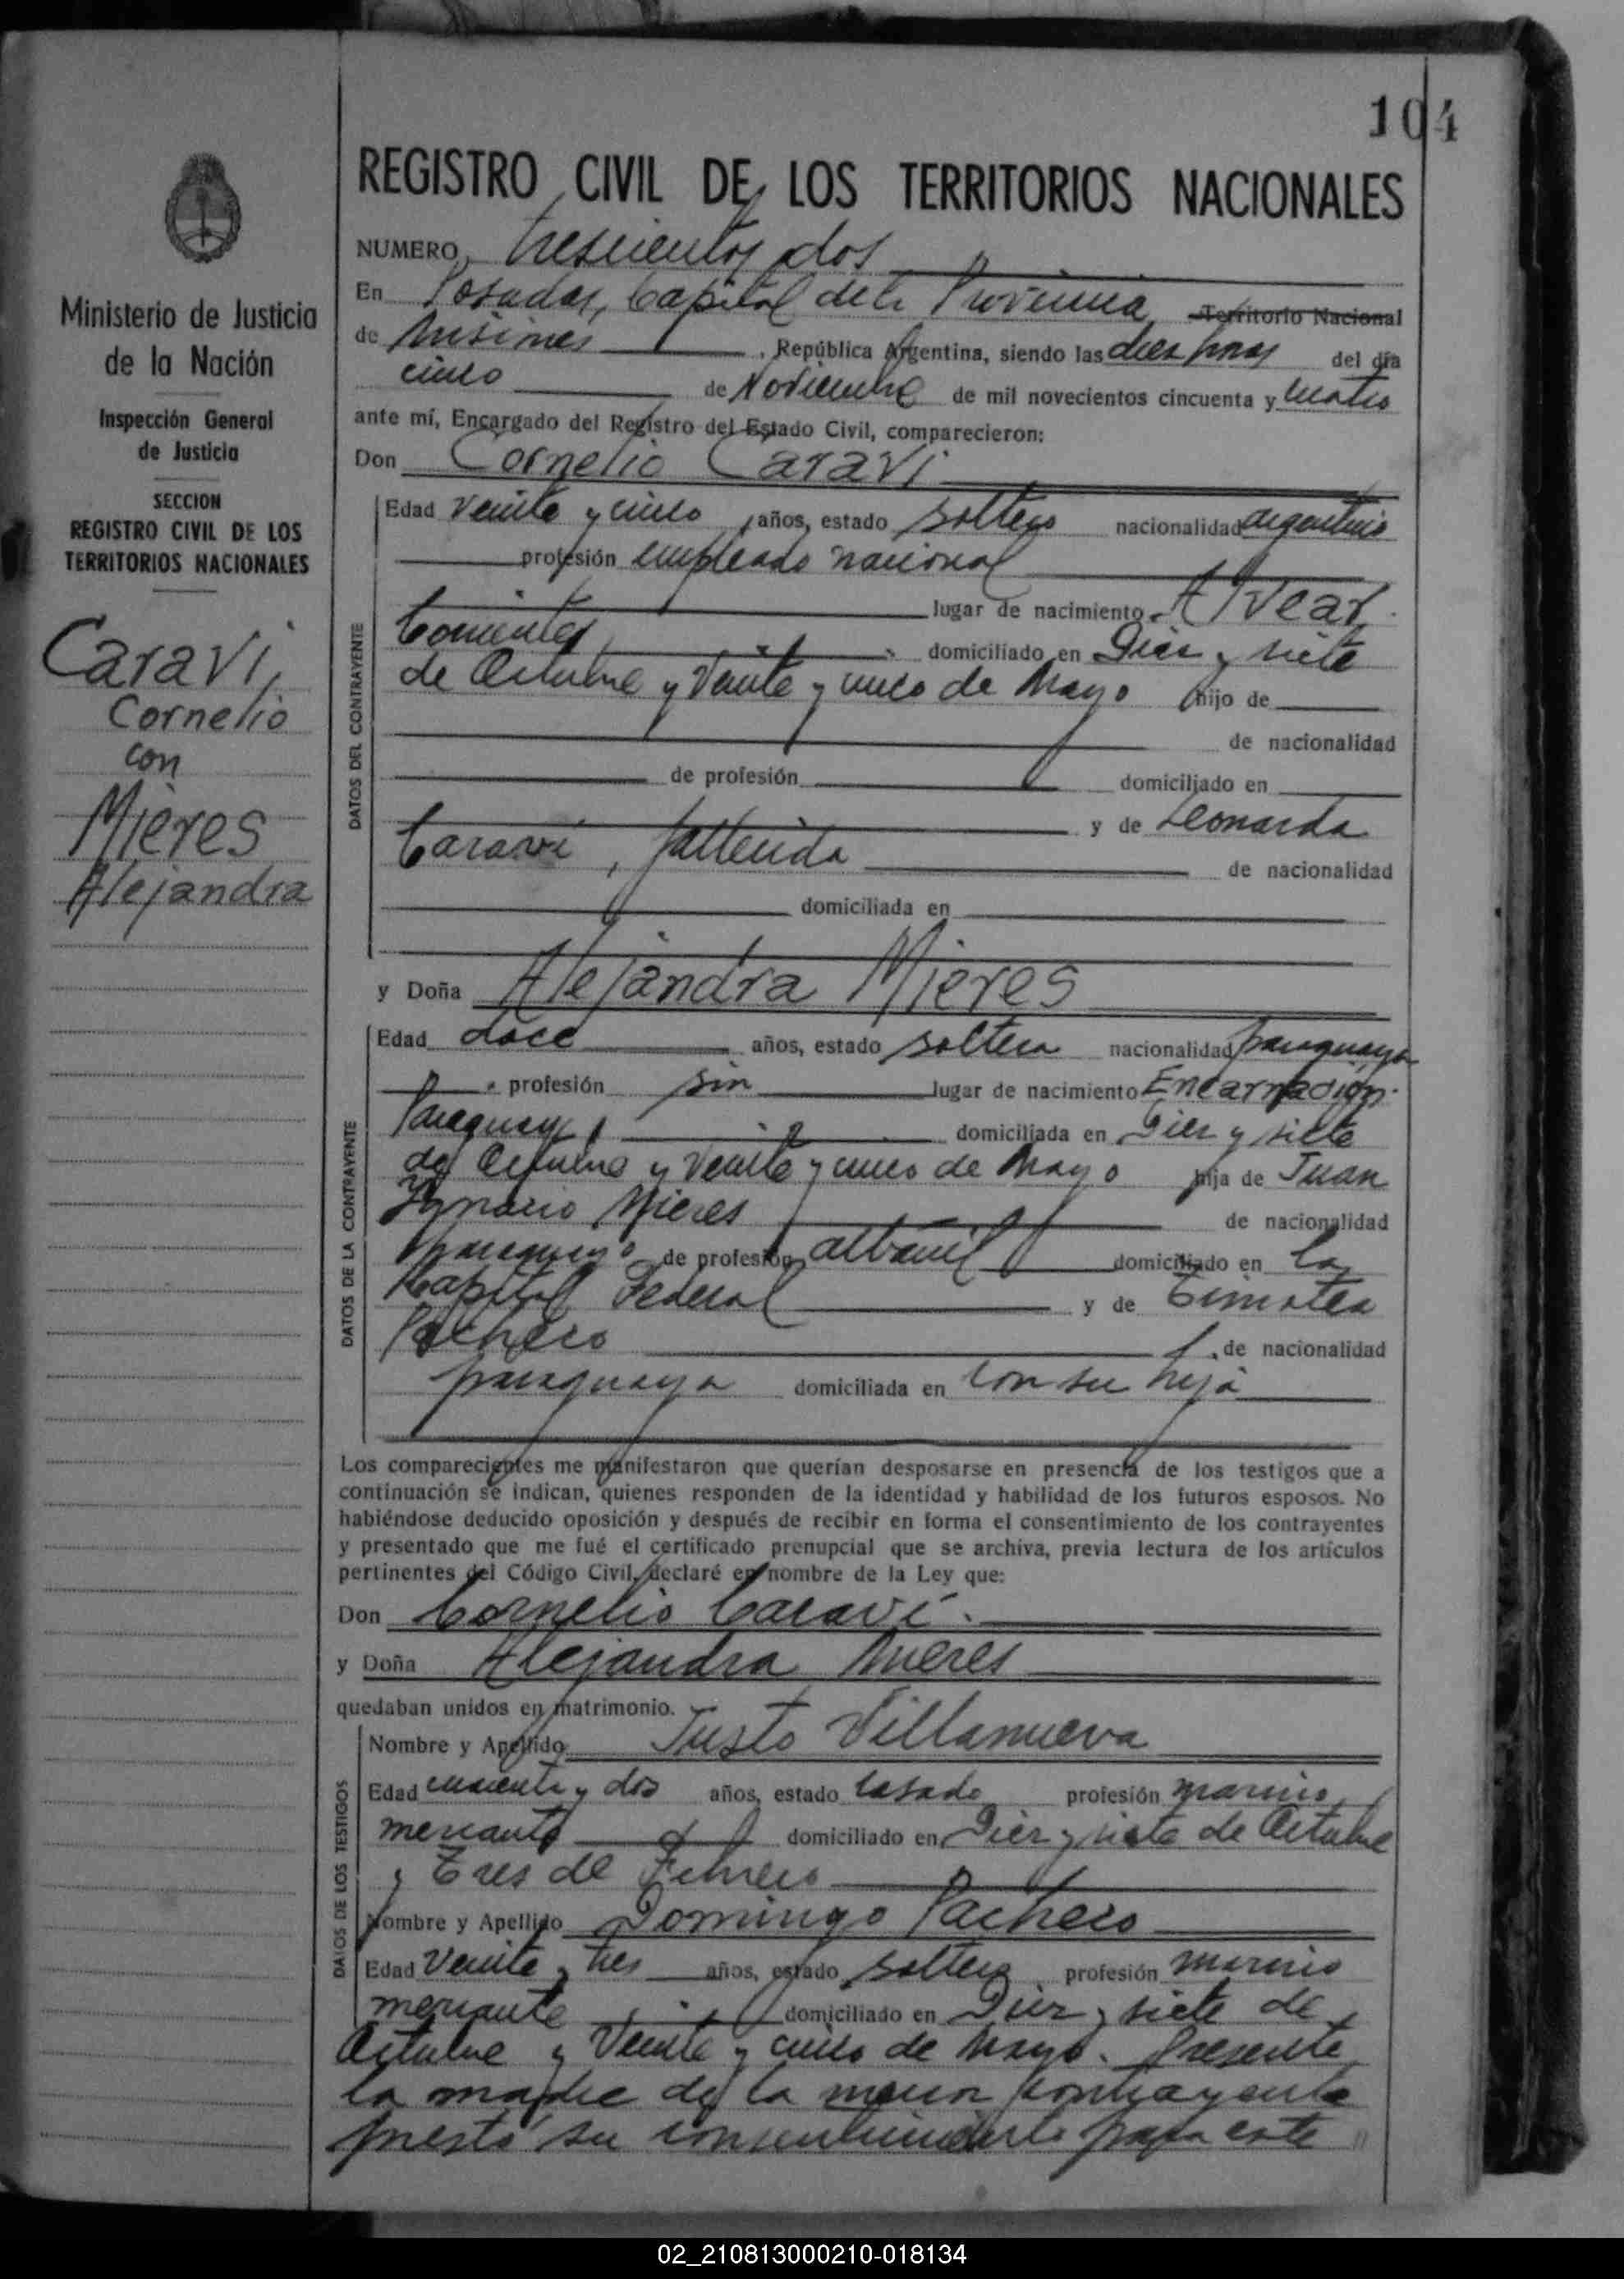 104
REGISTRO CIVIL DE LOS TERRITORIOS NACIONALES
Ministerio de Justicia
de la Nación
Inspección General
de Justicia
SECCION
REGISTRO CIVIL DE LOS
TERRITORIOS NACIONALES
Caravi,
Cornelio
con
Mieres
Alejandra
NUMERO trescientos dos
En Posadas, Capital de la Provincia Territorio Nacional
de Misiones, República Argentina, siendo las diez horas del día
cinco de Noviembre de mil novecientos cincuenta y cuatro
ante mí, Encargado del Registro del Estado Civil, comparecieron:
Don Cornelio Caravi
DATOS DEL CONTRAYENTE
Edad veinte y cinco años, estado soltero nacionalidad argentino
profesión empleado nacional
lugar de nacimiento Alvear
Corrientes domiciliado en Diez y siete
de Octubre y Veinte y cinco de Mayo hijo de
de nacionalidad
de profesión domiciliado en
y de Leonarda
Caravi, fallecida de nacionalidad
domiciliada en
y Doña Alejandra Mieres
DATOS DE LA CONTRAYENTE
Edad doce años, estado soltera nacionalidad paraguaya
profesión sin lugar de nacimiento Encarnación
Paraguay domiciliada en Diez y siete
de Octubre y Veinte y cinco de Mayo hija de Juan
Ygnacio Mieres de nacionalidad
paraguayo de profesión albañil domiciliado en la
Capital Federal y de Timotea
Pacheco, de nacionalidad
paraguaya domiciliada en con su hija
Los comparecientes me manifestaron que querían desposarse en presencia de los testigos que a
continuación se indican, quienes responden de la identidad y habilidad de los futuros esposos. No
habiéndose deducido oposición y después de recibir en forma el consentimiento de los contrayentes
y presentado que me fué el certificado prenupcial que se archiva, previa lectura de los artículos
pertinentes del Código Civil, declaré en nombre de la Ley que:
Don Cornelio Caraví.
y Doña Alejandra Mieres
quedaban unidos en matrimonio.
DATOS DE LOS TESTIGOS
Nombre y Apellido Justo Villanueva
Edad cuarenta y dos años, estado casado profesión marino
mercante domiciliado en Diez y siete de Octubre
y Tres de Febrero
Nombre y Apellido Domingo Pacheco
Edad Veinte y tres años, estado soltero profesión marino
mercante domiciliado en Diez y siete de
Octubre y Veinte y cinco de Mayo. Presente
la madre de la menor contrayente
prestó su consentimiento para este
02_210813000210-018134